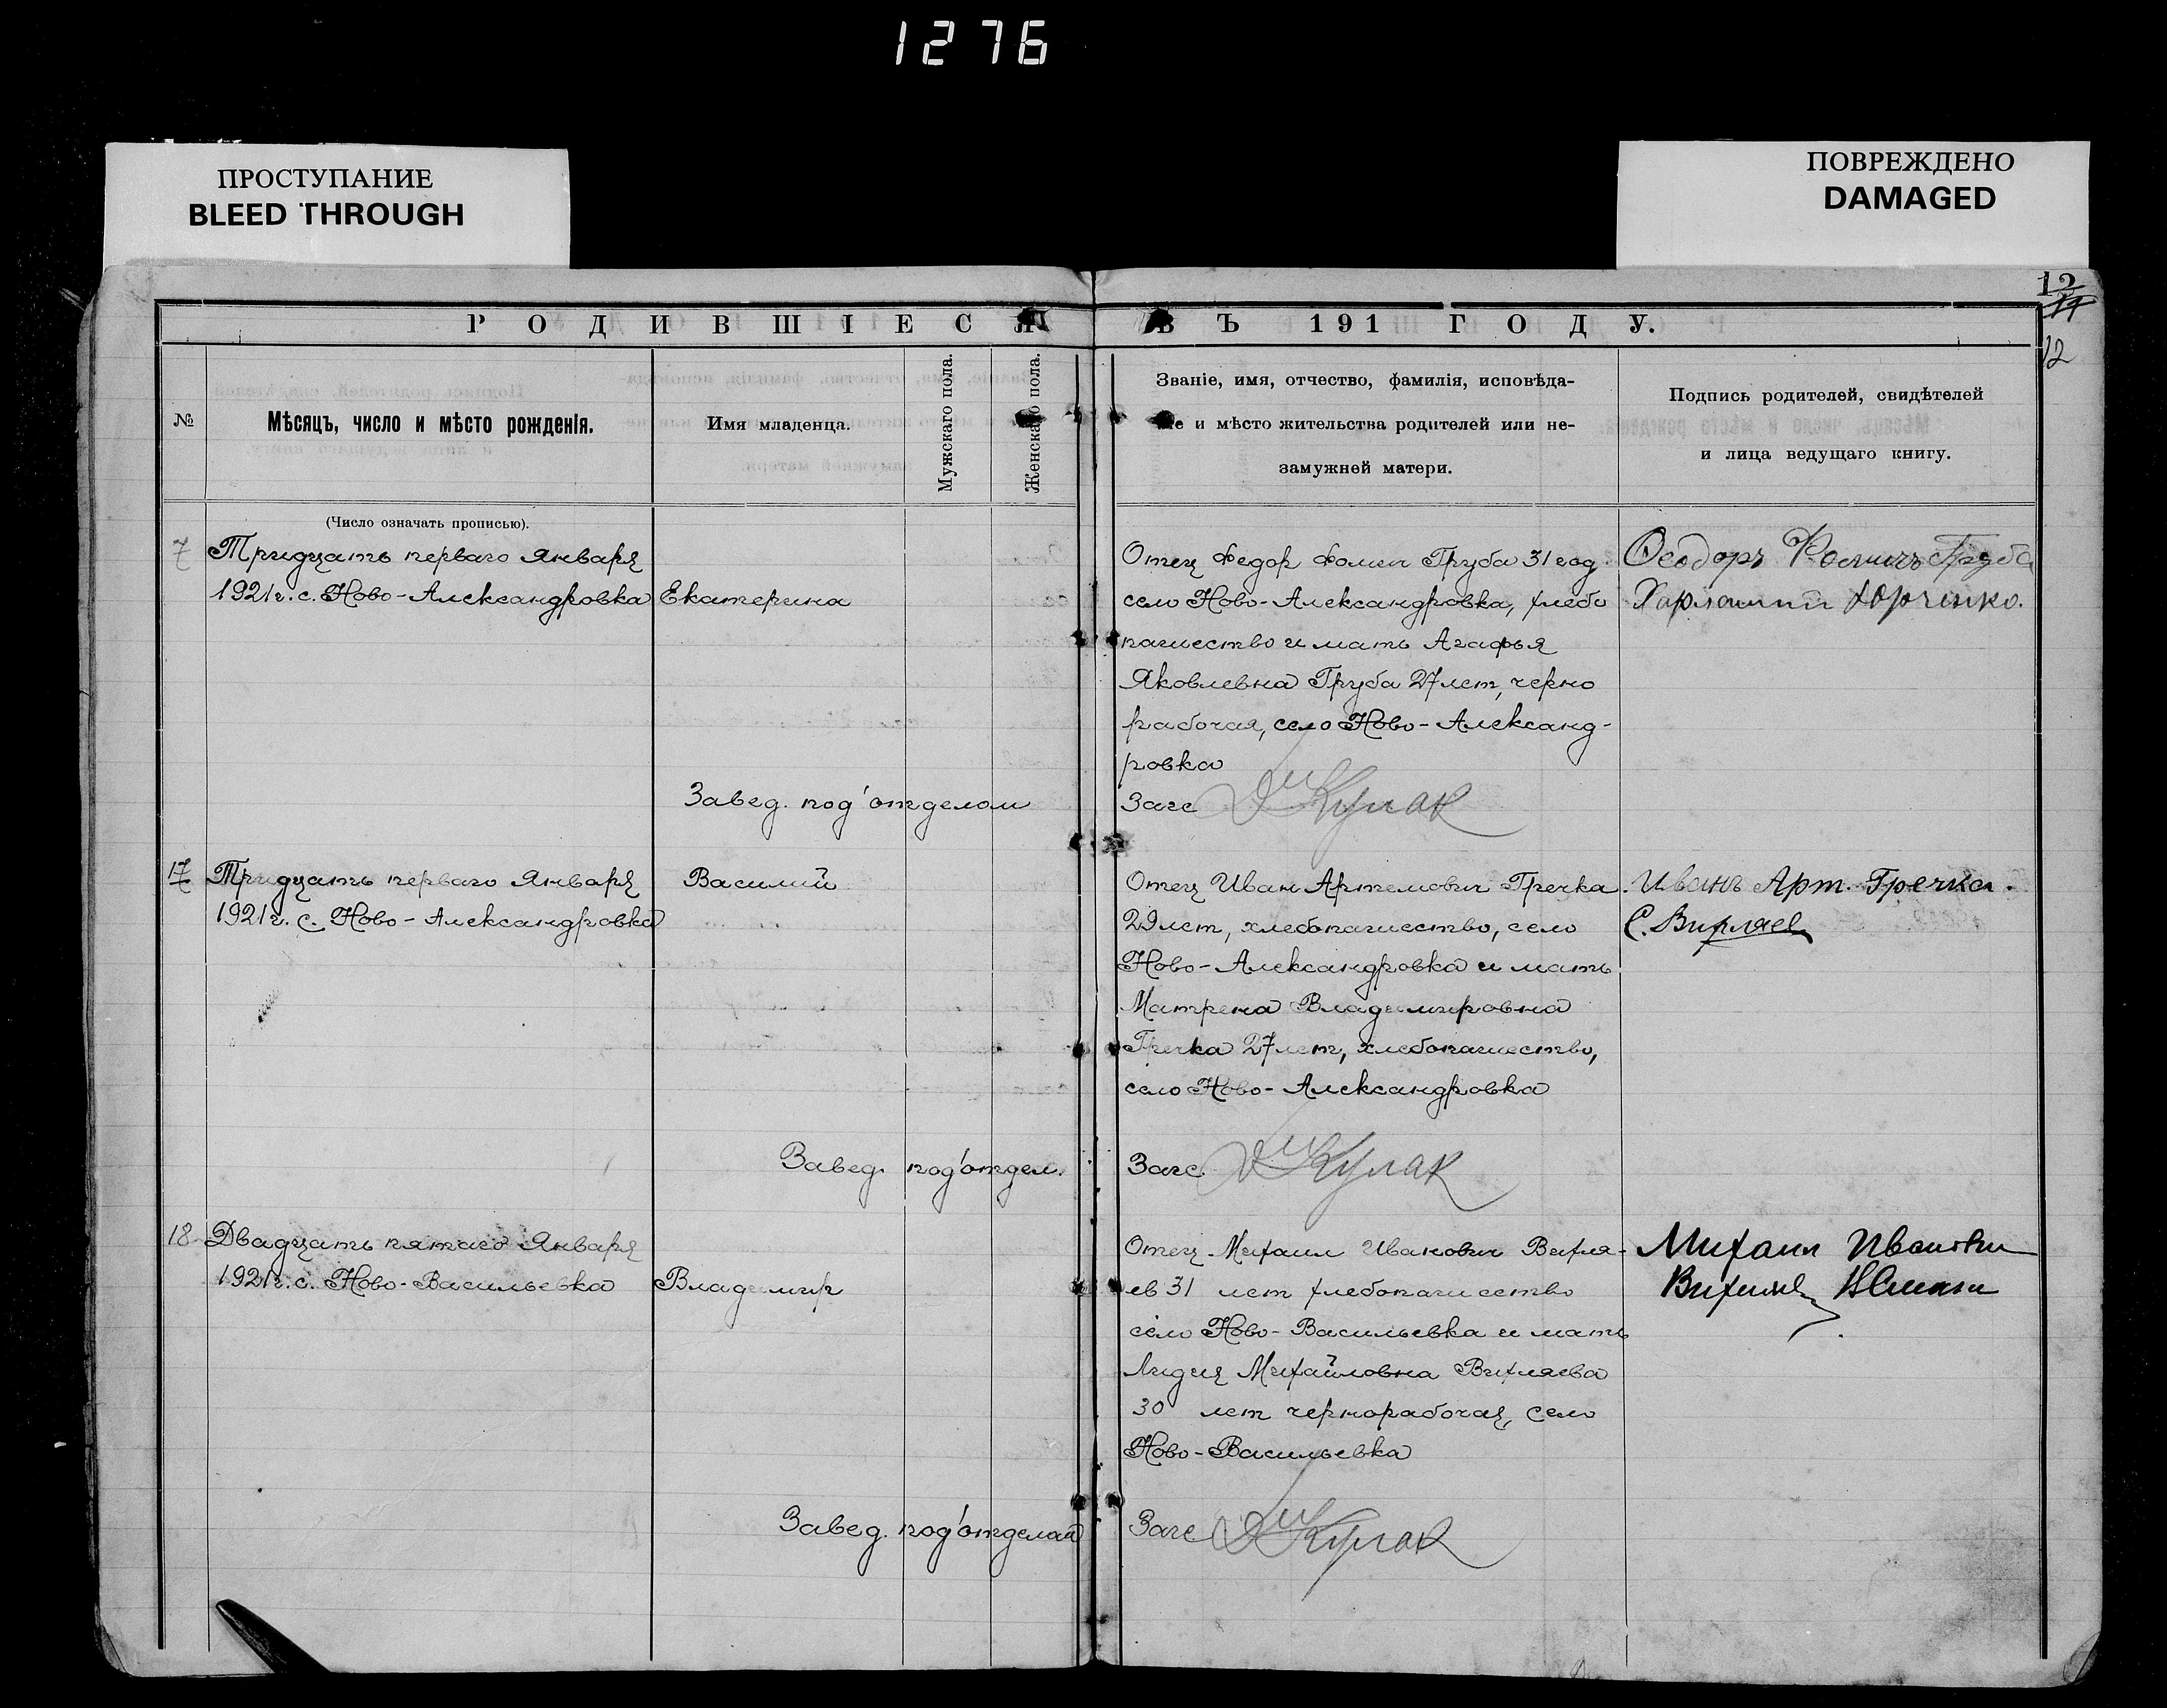 1276
ПРОСТУПАНИЕ
BLEED THROUGH
ПОВРЕЖДЕНО
DAMAGED
12
11
12
РОДИВШІЕСЯ
ВЪ 191 ГОДУ.
№
Мѣсяцъ, число и мѣсто рожденія.
Имя младенца.
Мужскаго пола.
Женскаго пола.
Званіе, имя, отчество, фамилія, исповѣда-
ніе и мѣсто жительства родителей или не-
замужней матери.
Подпись родителей, свидѣтелей
и лица ведущаго книгу.
(Число означать прописью).
7
Тридцать перваго Января
1921 г. с. Ново-Александровка
Екатерина
Отец Федор Фомич Груба 31 год
село Ново-Александровка, хлебо
пашество и мать Агафья
Яковлевна Груба 27 лет, черно
рабочая, село Ново-Александ-
ровка
Ѳеодоръ Фомичъ Груба
Харлампий
Завед. под'отделом
Загс Кулак
17
Тридцать перваго Января
1921 г. с. Ново-Александровка
Василий
Отец Иван Артемович Гречка
29 лет, хлебопашество, село
Ново-Александровка и мать
Матрена Владимировна
Гречка 27 лет, хлебопашество,
село Ново-Александровка
Иванъ Арт. Гречка.
С.
Завед. под'отдел.
Загс. Кулак
18
Двадцать пятаго Января
1921 г. с. Ново-Васильевка
Владимир
Отец Михаил Иванович Вихля-
ев 31 лет хлебопашество
село Ново-Васильевка и мать
Лидия Михайловна Вихляева
30 лет чернорабочая, село
Ново-Васильевка
Михаил Иванович
Вихляев
Завед. под'отделом
Загс Кулак